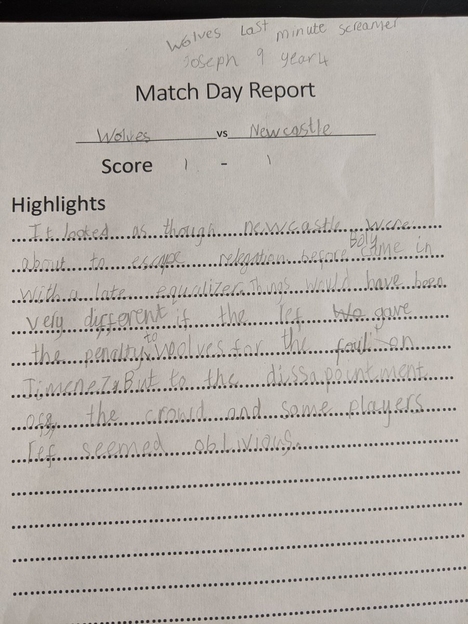 Wolves Last minute screamer
Joseph 9 year 4
Match Day Report
Wolves vs Newcastle
Score 1 - 1
Highlights
It looked as though newcastle were
about to escape relegation before Boly came in
with a late equalizer. Things would have been
very different if the ref We gave
the penalty to Wolves for the foul on
Jimenez. But to the dissapointment
off the crowd and some players
ref seemed oblivious.